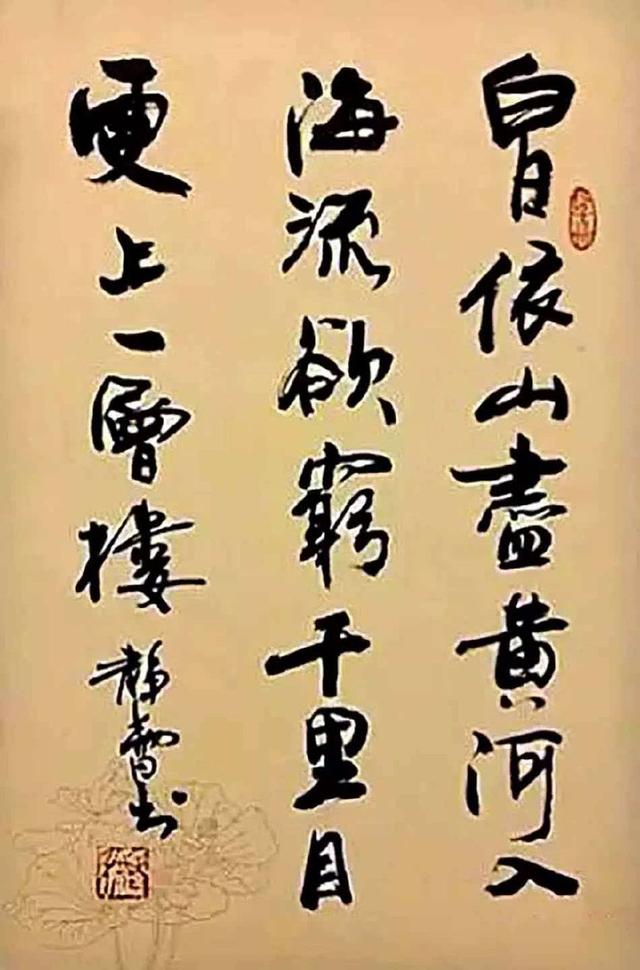 白日依山盡黄河入
海流欲窮千里目
更上一層樓
静 书